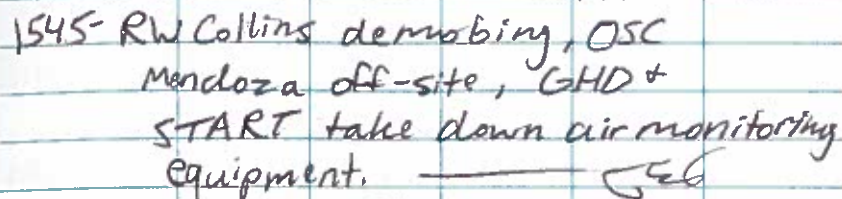 1545- RW Collins demobing, OSC
Mendoza off-site, GHD +
START take down air monitoring
equipment.